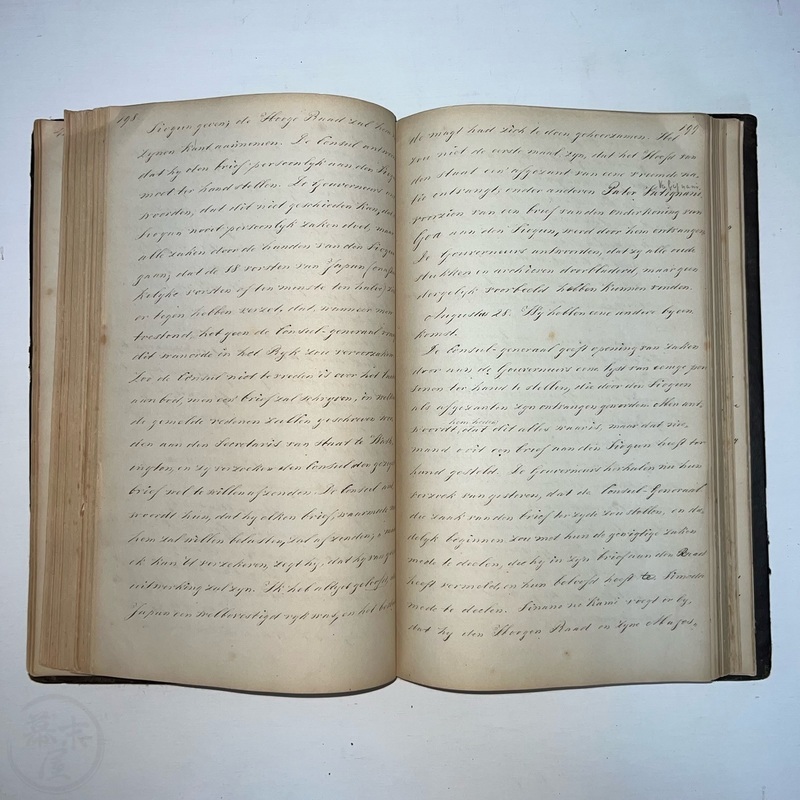 198
Siogun geven, de Hooge Raad zal
zynen kant aannemen. De Consul antwoord
dat hy den brief persoonlyk aan den
moet ter hand stellen. De Gouverneurs
woorden, dat dit niet geschieden kan, dat
Siogun nooit persoonlyk zaken doet, maar
alle zaken door de handen van den
gaan, dat de 18 vorsten van Japan
kelyke vorsten of ten minste ten halve)
er tegen hebben verzet, dat, wanneer men
toestond, het geen de Consul-generaal
dit wanorde in het Ryk zou veroorzaken.
Zoo de Consul niet te vreden is over het
aanbod, men een brief zal schryven, in welke
de gemelde redenen zullen geschreven
den aan den Secretaris van Staat te Wash
ington, en zy verzoeken den Consul dien
brief wel te willen afzenden. De Consul
woordt hun, dat hy elken brief, waarmede
hem zal willen belasten, zal afzenden,
ik kan U verzekeren, zegt hy, dat hy van
uitwerking zal zyn. Ik heb altyd geloofd,
Japan een welbevestigd ryk was, en het
199
de magt had zich te doen gehoorzamen. Het
zou niet de eerste maal zyn, dat het Hoofd van
den staat een afgezant van eene vreemde na
tie ontvangt, onder anderen Pater
voorzien van een brief van den onderkoning van
Goa aan den Siogun, werd door hem ontvangen.
De Gouverneurs antwoorden, dat zy alle oude
stukken in archieven doorbladerd, maar geen
dergelyk voorbeeld hebben kunnen vinden.
Augustus 28. Wy hebben eene andere byeen
komst.
De Consul-generaal geeft opening van zaken
door aan de Gouverneurs eene lyst van eenige per
sonen ter hand te stellen, die door den Siogun
als afgezanten zyn ontvangen geworden. Men ant,
woordt, dat dit alles waar is, maar dat nie,
mand ooit een brief aan den Siogun heeft ter
hand gesteld. De Gouverneurs herhalen nu hun
verzoek van gisteren, dat de Consul-Generaal
die zaak van den brief ter zyde zou stellen, en da,
delyk beginnen zou met hun de gewigtige zaken
mede te deelen, die hy in zyn brief aan den Raad
heeft vermeld, en hun beloofd heeft te Simoda
mede te deelen. Sinano no Kami voegt er by,
dat hy den Hoogen Raad en Zyne Majes,